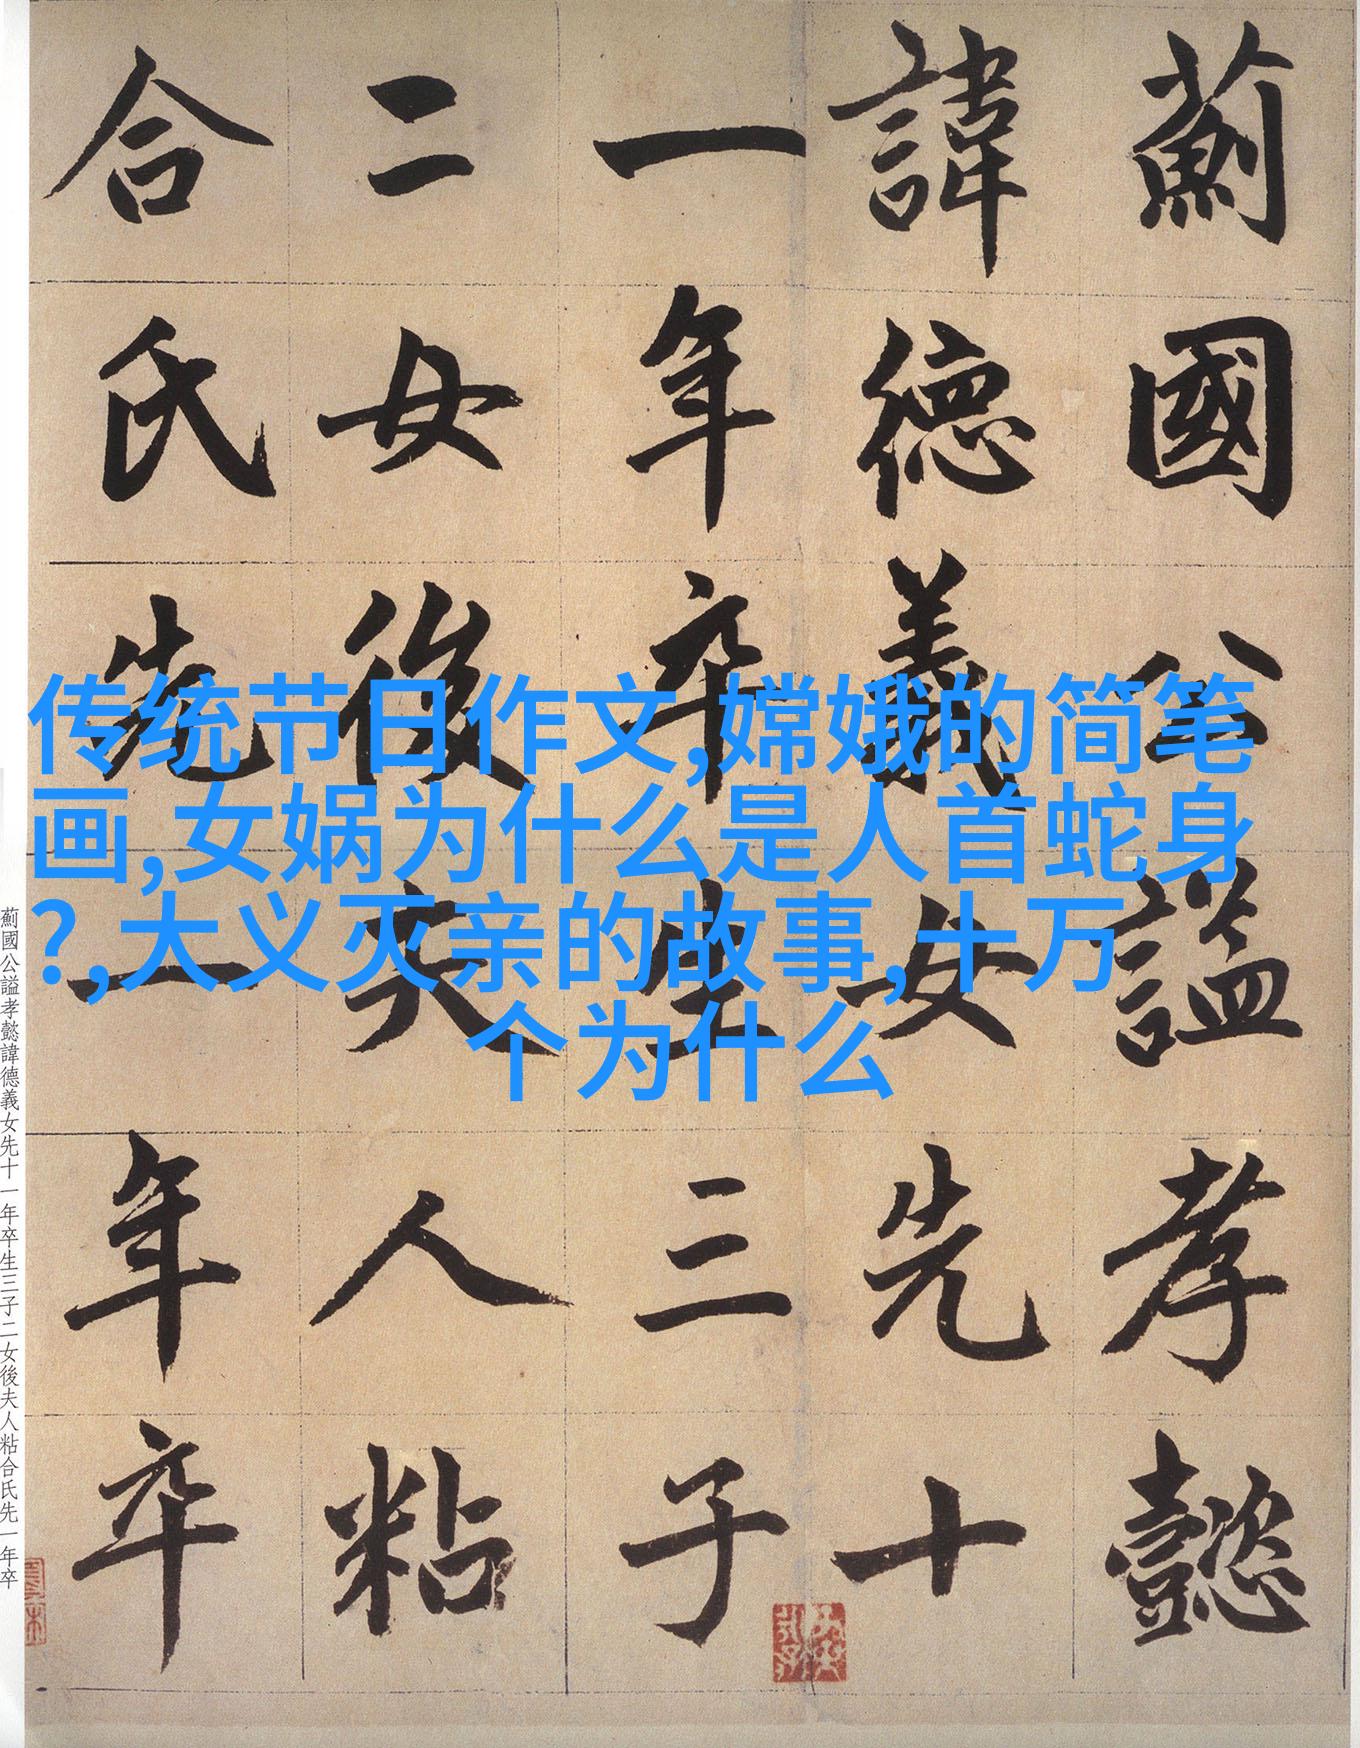 薊國公謚孝懿
諱德義女先十
一年卒生三子
二女後夫人粘
合氏先一年卒
传统节日作文,嫦娥的简笔
画,女娲为什么是人首蛇身
?,大义灭亲的故事,十万
个为什么
薊國公謚孝懿諱德義女先十一年卒生三子二女後夫人粘合氏先一年卒